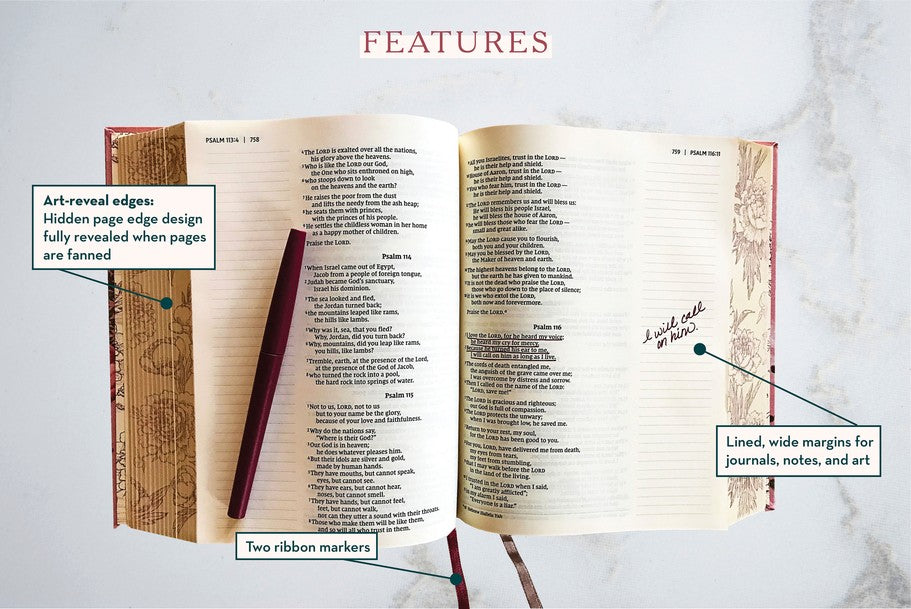 FEATURES
PSALM 113:4 | 758
⁴The LORD is exalted over all the nations,
his glory above the heavens.
⁵Who is like the LORD our God,
the One who sits enthroned on high,
⁶who stoops down to look
on the heavens and the earth?
⁷He raises the poor from the dust
and lifts the needy from the ash heap;
⁸he seats them with princes,
with the princes of his people.
⁹He settles the childless woman in her home
as a happy mother of children.
Praise the LORD.
Psalm 114
¹When Israel came out of Egypt,
Jacob from a people of foreign tongue,
²Judah became God's sanctuary,
Israel his dominion.
³The sea looked and fled,
the Jordan turned back;
⁴the mountains leaped like rams,
the hills like lambs.
⁵Why was it, sea, that you fled?
Why, Jordan, did you turn back?
⁶Why, mountains, did you leap like rams,
you hills, like lambs?
⁷Tremble, earth, at the presence of the Lord,
at the presence of the God of Jacob,
⁸who turned the rock into a pool,
the hard rock into springs of water.
Psalm 115
¹Not to us, LORD, not to us
but to your name be the glory,
because of your love and faithfulness.
²Why do the nations say,
"Where is their God?"
³Our God is in heaven;
he does whatever pleases him.
⁴But their idols are silver and gold,
made by human hands.
⁵They have mouths, but cannot speak,
eyes, but cannot see.
⁶They have ears, but cannot hear,
noses, but cannot smell.
⁷They have hands, but cannot feel,
feet, but cannot walk,
nor can they utter a sound with their throats.
⁸Those who make them will be like them,
and so will all who trust in them.
759 | PSALM 116:11
⁹All you Israelites, trust in the LORD—
he is their help and shield.
¹⁰House of Aaron, trust in the LORD—
he is their help and shield.
¹¹You who fear him, trust in the LORD—
he is their help and shield.
¹²The LORD remembers us and will bless us:
He will bless his people Israel,
he will bless the house of Aaron,
¹³he will bless those who fear the LORD—
small and great alike.
¹⁴May the LORD cause you to flourish,
both you and your children.
¹⁵May you be blessed by the LORD,
the Maker of heaven and earth.
¹⁶The highest heavens belong to the LORD,
but the earth he has given to mankind.
¹⁷It is not the dead who praise the LORD,
those who go down to the place of silence;
¹⁸it is we who extol the LORD,
both now and forevermore.
Praise the LORD.ᵃ
Psalm 116
¹I love the LORD, for he heard my voice;
he heard my cry for mercy.
²Because he turned his ear to me,
I will call on him as long as I live.
³The cords of death entangled me,
the anguish of the grave came over me;
I was overcome by distress and sorrow.
⁴Then I called on the name of the LORD:
"LORD, save me!"
⁵The LORD is gracious and righteous;
our God is full of compassion.
⁶The LORD protects the unwary;
when I was brought low, he saved me.
⁷Return to your rest, my soul,
for the LORD has been good to you.
⁸For you, LORD, have delivered me from death,
my eyes from tears,
my feet from stumbling,
⁹that I may walk before the LORD
in the land of the living.
¹⁰I trusted in the LORD when I said,
"I am greatly afflicted";
¹¹in my alarm I said,
"Everyone is a liar."
I will call
on him.
Art-reveal edges:
Hidden page edge design
fully revealed when pages
are fanned
Lined, wide margins for
journals, notes, and art
Two ribbon markers